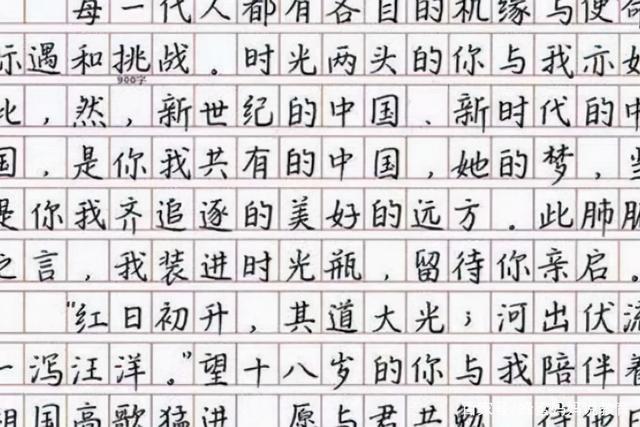 每一代人都有各自的机缘与使命
际遇和挑战。时光两头的你与我亦如
900字
此，然，新世纪的中国、新时代的中
国，是你我共有的中国，她的梦，当
是你我齐追逐的美好的远方。此肺腑
之言，我装进时光瓶，留待你亲启。
"红日初升，其道大光；河出伏流
一泻汪洋。"望十八岁的你与我陪伴着
祖国高歌猛进，愿与君共勉，待他日